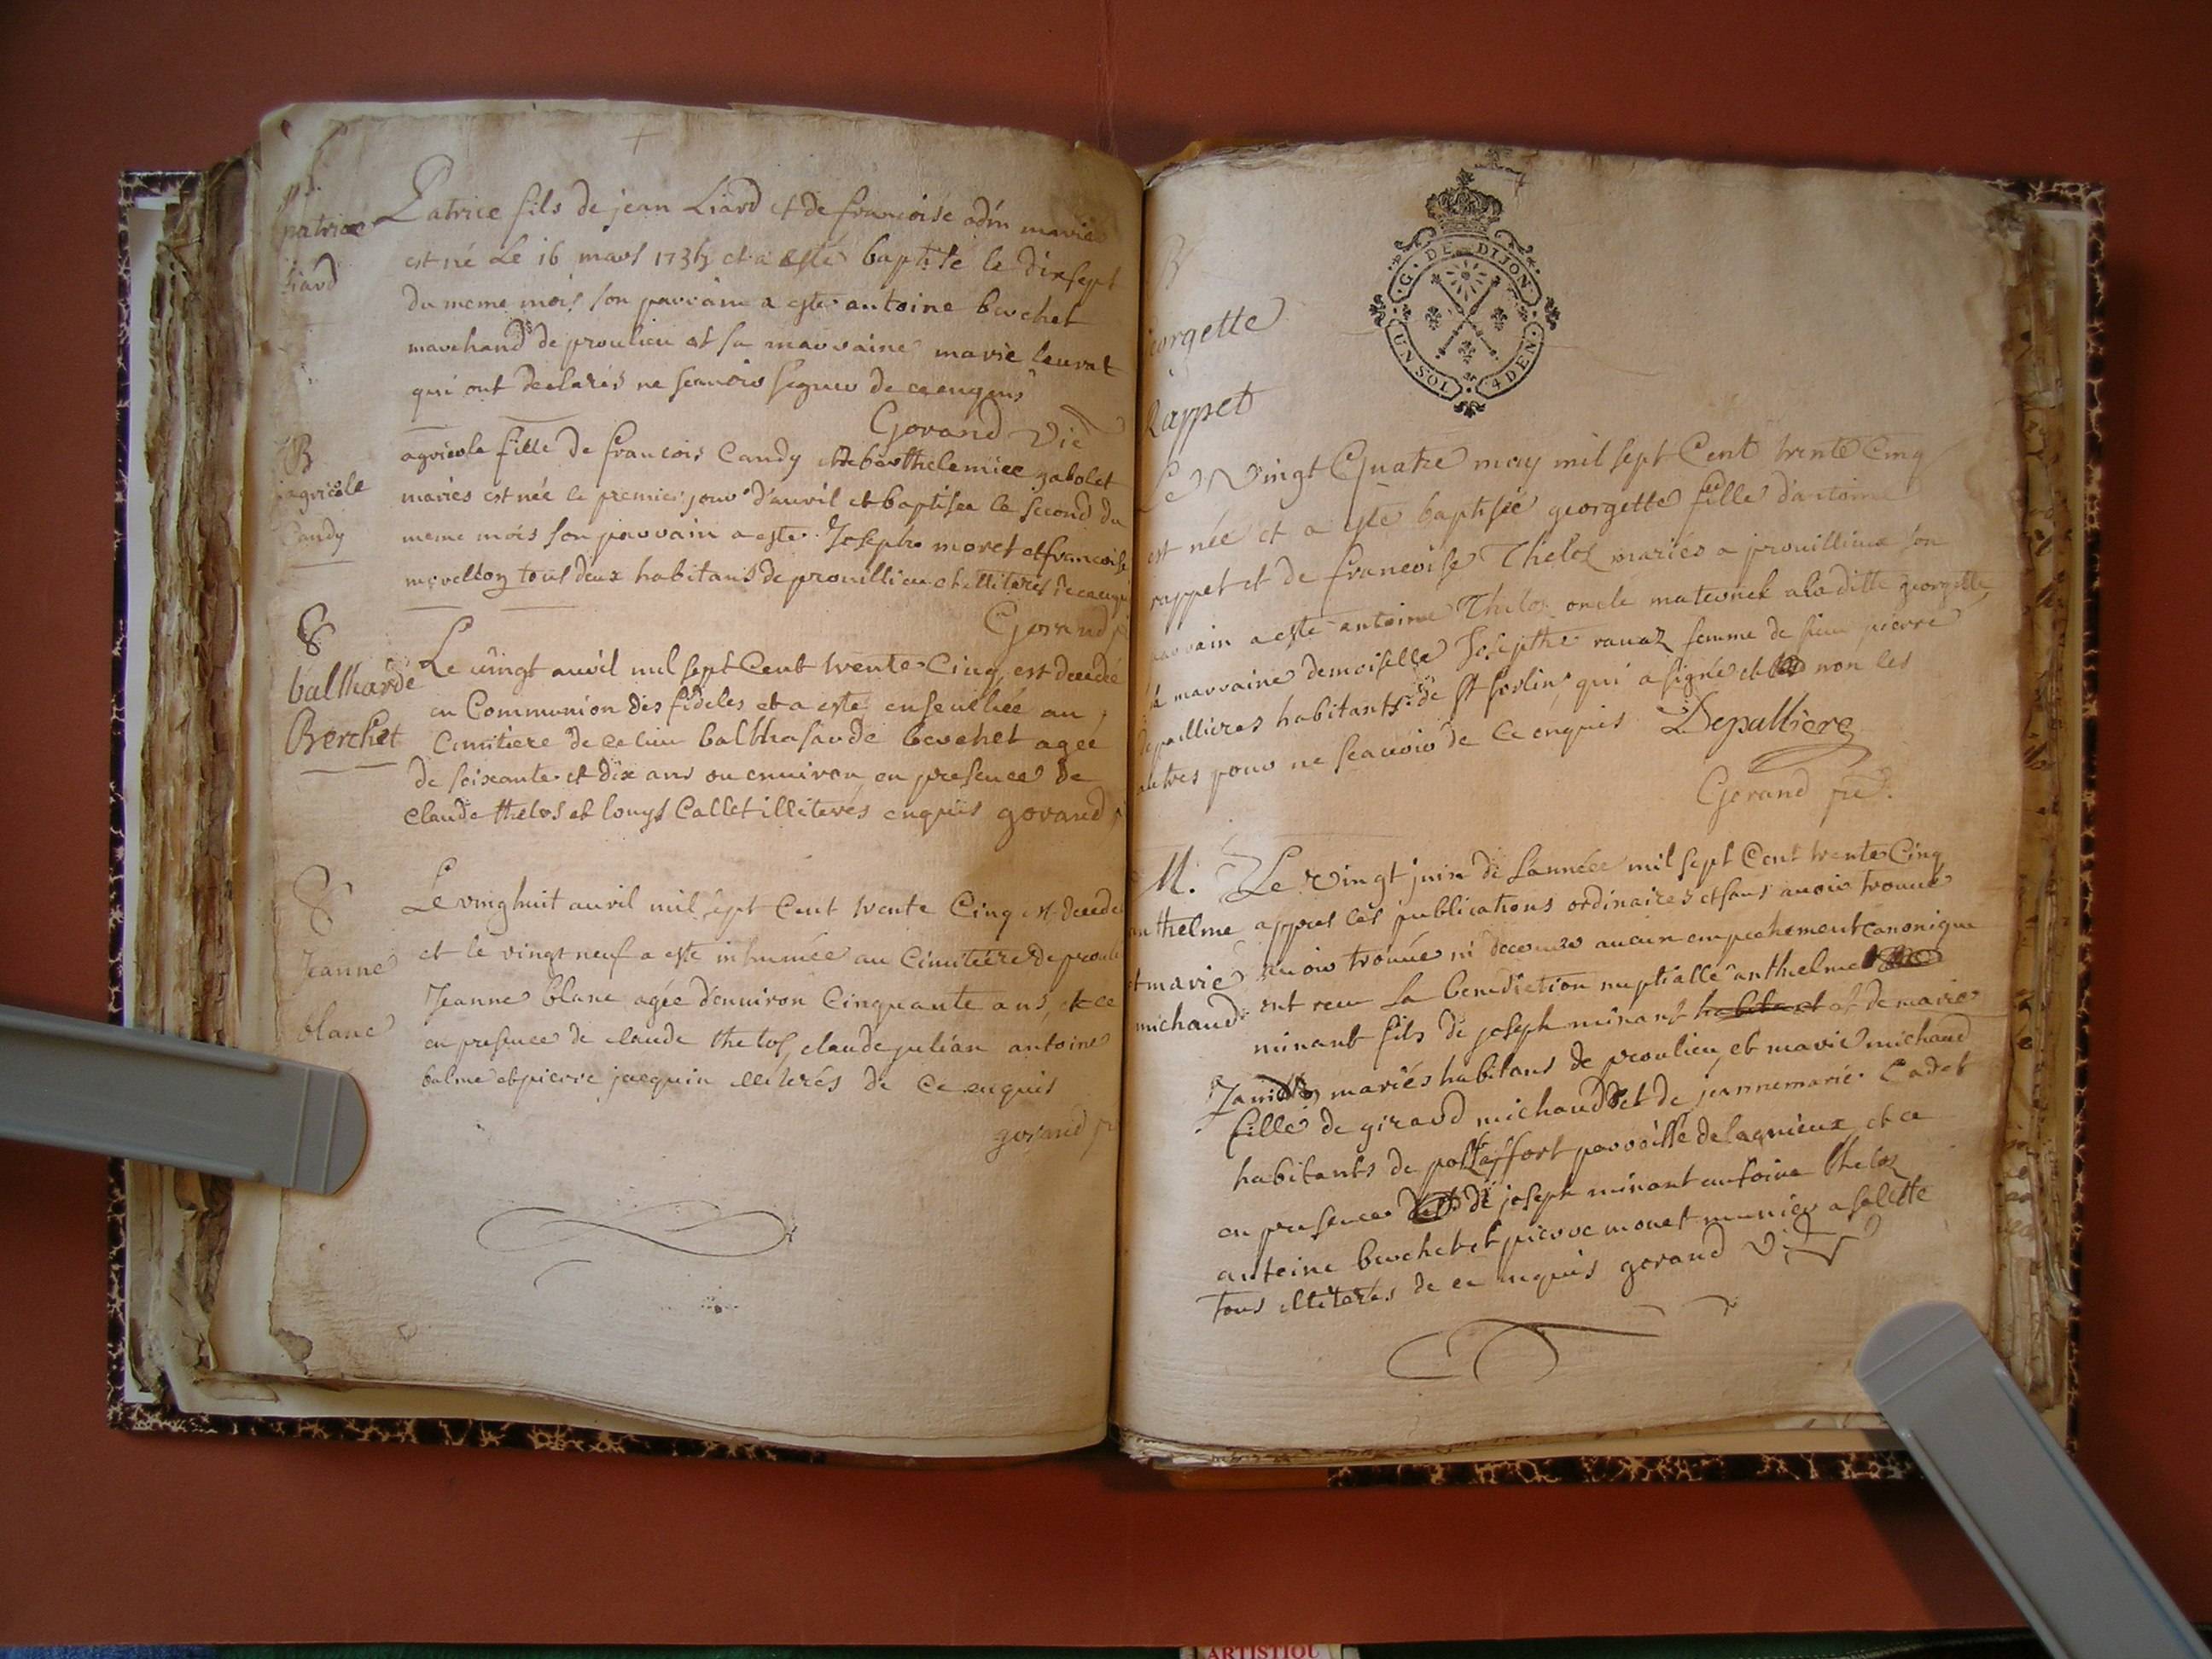 B.
patrice
Liard
Patrice fils de jean Liard et de francoise adin mariés
est né Le 16 mars 1735 et a esté baptisé le dixsept
du meme mois son parrain a esté antoine berchet
marchand de proulieu et sa marraine marie leurat
qui ont declarés ne scauoir signer de ce enquis
Gorand Vic
B
agricole
Candy
agricole fille de francois Candy et de barthelemiee gabolet
mariés est née le premier jour d'auril et baptisee le second du
meme mois son parrain a esté Joseph moret et francoise
tous deux habitans de prouillieu et illiterés de ce enquis
Gorand p
balthasarde
Berchet
Le uingt auril mil sept Cent trente Cinq, est decedée
en Communion des fideles et a esté enseuelie au
Cimitiere de ce lieu balthasarde berchet agee
de soixante et dix ans ou enuiron en presence de
claude thelos et louys Callet illiterés enquis gorand p
Jeanne
blanc
Le vinghuit auril mil sept Cent trente Cinq est decedée
et le vingt neuf a esté inhumée au Cimitiére de
Jeanne blanc agée d'enuiron Cinquante ans, et ce
en presence de claude thelos, claude julian antoine
balme et pierre jacquin illiterés de ce enquis
gorand p
G. DE DIJON
UN SOL 4 DEN.
B
georgette
Rappet
Le Vingt Quatre may mil sept Cent trente Cinq
est née et a esté baptisée georgette fille d'antoine
rappet et de francoise Theloz mariés a prouillieux son
parrain a esté antoine Theloz oncle maternel a la ditte georgette
sa marraine demoiselle Josepthe rauaz femme de sieur pierre
depallieres habitants de St sorlin qui a signé et non les
autres pour ne scauoir de ce enquis Depalliere
Gorand
M.
anthelme
et marie
michaud
Le Vingt juin de L'année mil sept Cent trente Cinq
appres les publications ordinaires et sans auoir trouué
auoir trouué ni decouuert aucun empechement canonique
ont receu La benediction nuptialle anthelme
minant fils de joseph minant habitant et de marie
mariés habitans de proulieu, et marie michaud
fille de girard michaud et de jeannemarie Cadet
habitants de parroisse de lagnieux et ce
en presence de joseph minant antoine theloz
antoine berchet et pierre monet munier a salette
tous illiterés de ce enquis gorand
ARTISTIQU